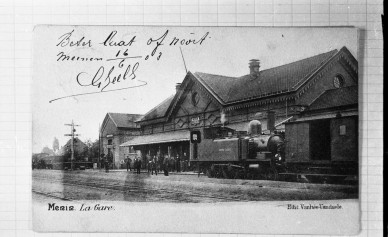 Beter laat of nooit
Meenen 16/6 03
MENIN. La Gare.
Edit. Vanhée-